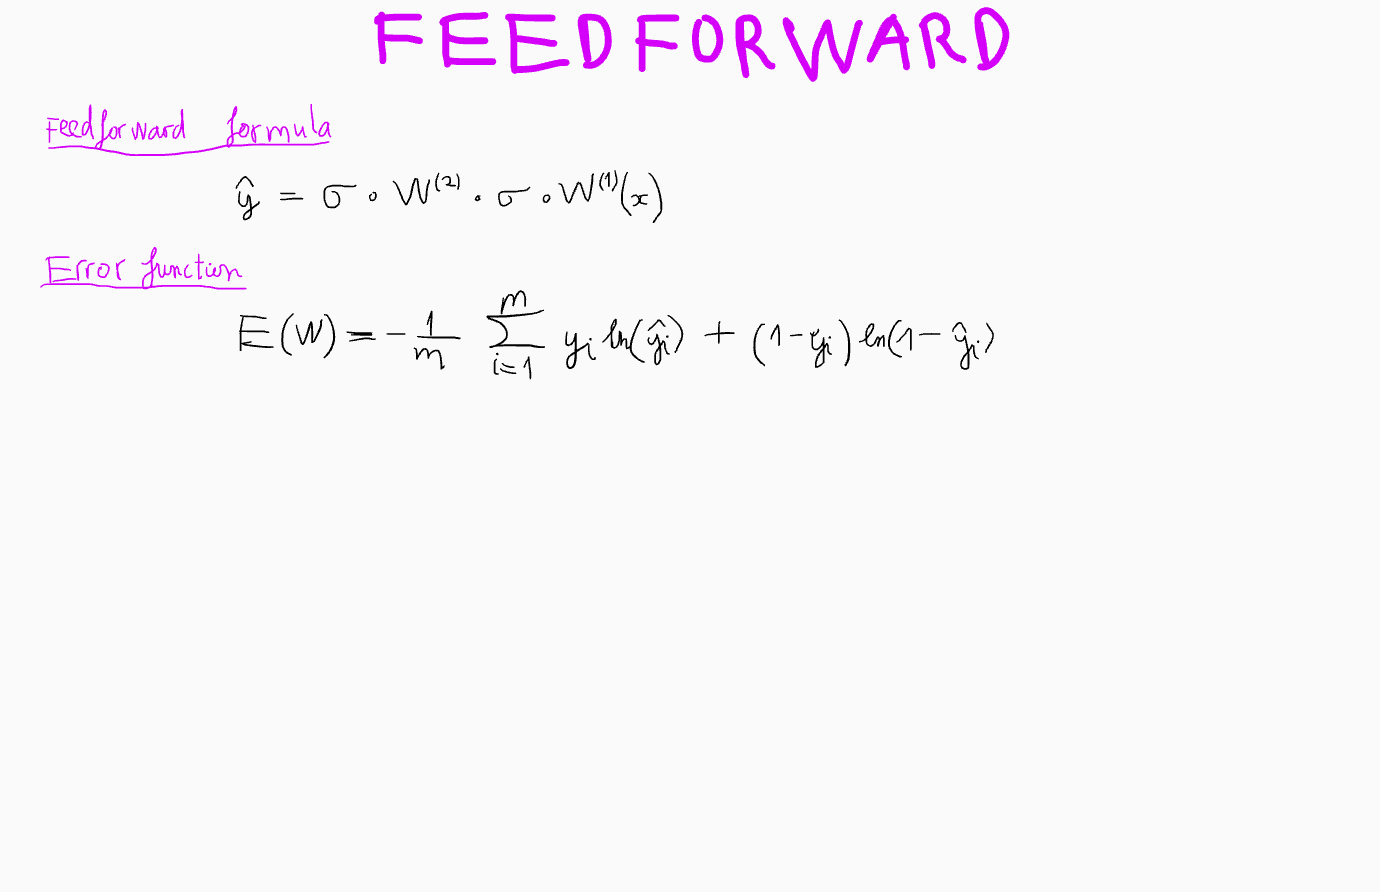 FEEDFORWARD
Feedforward formula
ŷ = σ ∘ W⁽²⁾ ∘ σ ∘ W⁽¹⁾(x)
Error function
E(W) = - 1/m ∑_{i=1}^{m} yᵢ ln(ŷᵢ) + (1-yᵢ) ln(1-ŷᵢ)